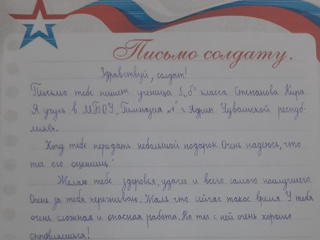 Письмо солдату.
Здравствуй, солдат!
Письмо тебе пишет ученица 5 "б" класса Степанова Кира.
Я учусь в МБОУ "Гимназия №1" г. Ядрин Чувашской респуб-
лики.
Хочу тебе передать небольшой подарок. Очень надеюсь, что
ты его оценишь.
Желаю тебе здоровья, удачи и всего самого наилучшего.
Очень за тебя переживаю. Жаль что сейчас такое время. У тебя
очень сложная и опасная работа. Но ты с ней очень хорошо
справляешься!